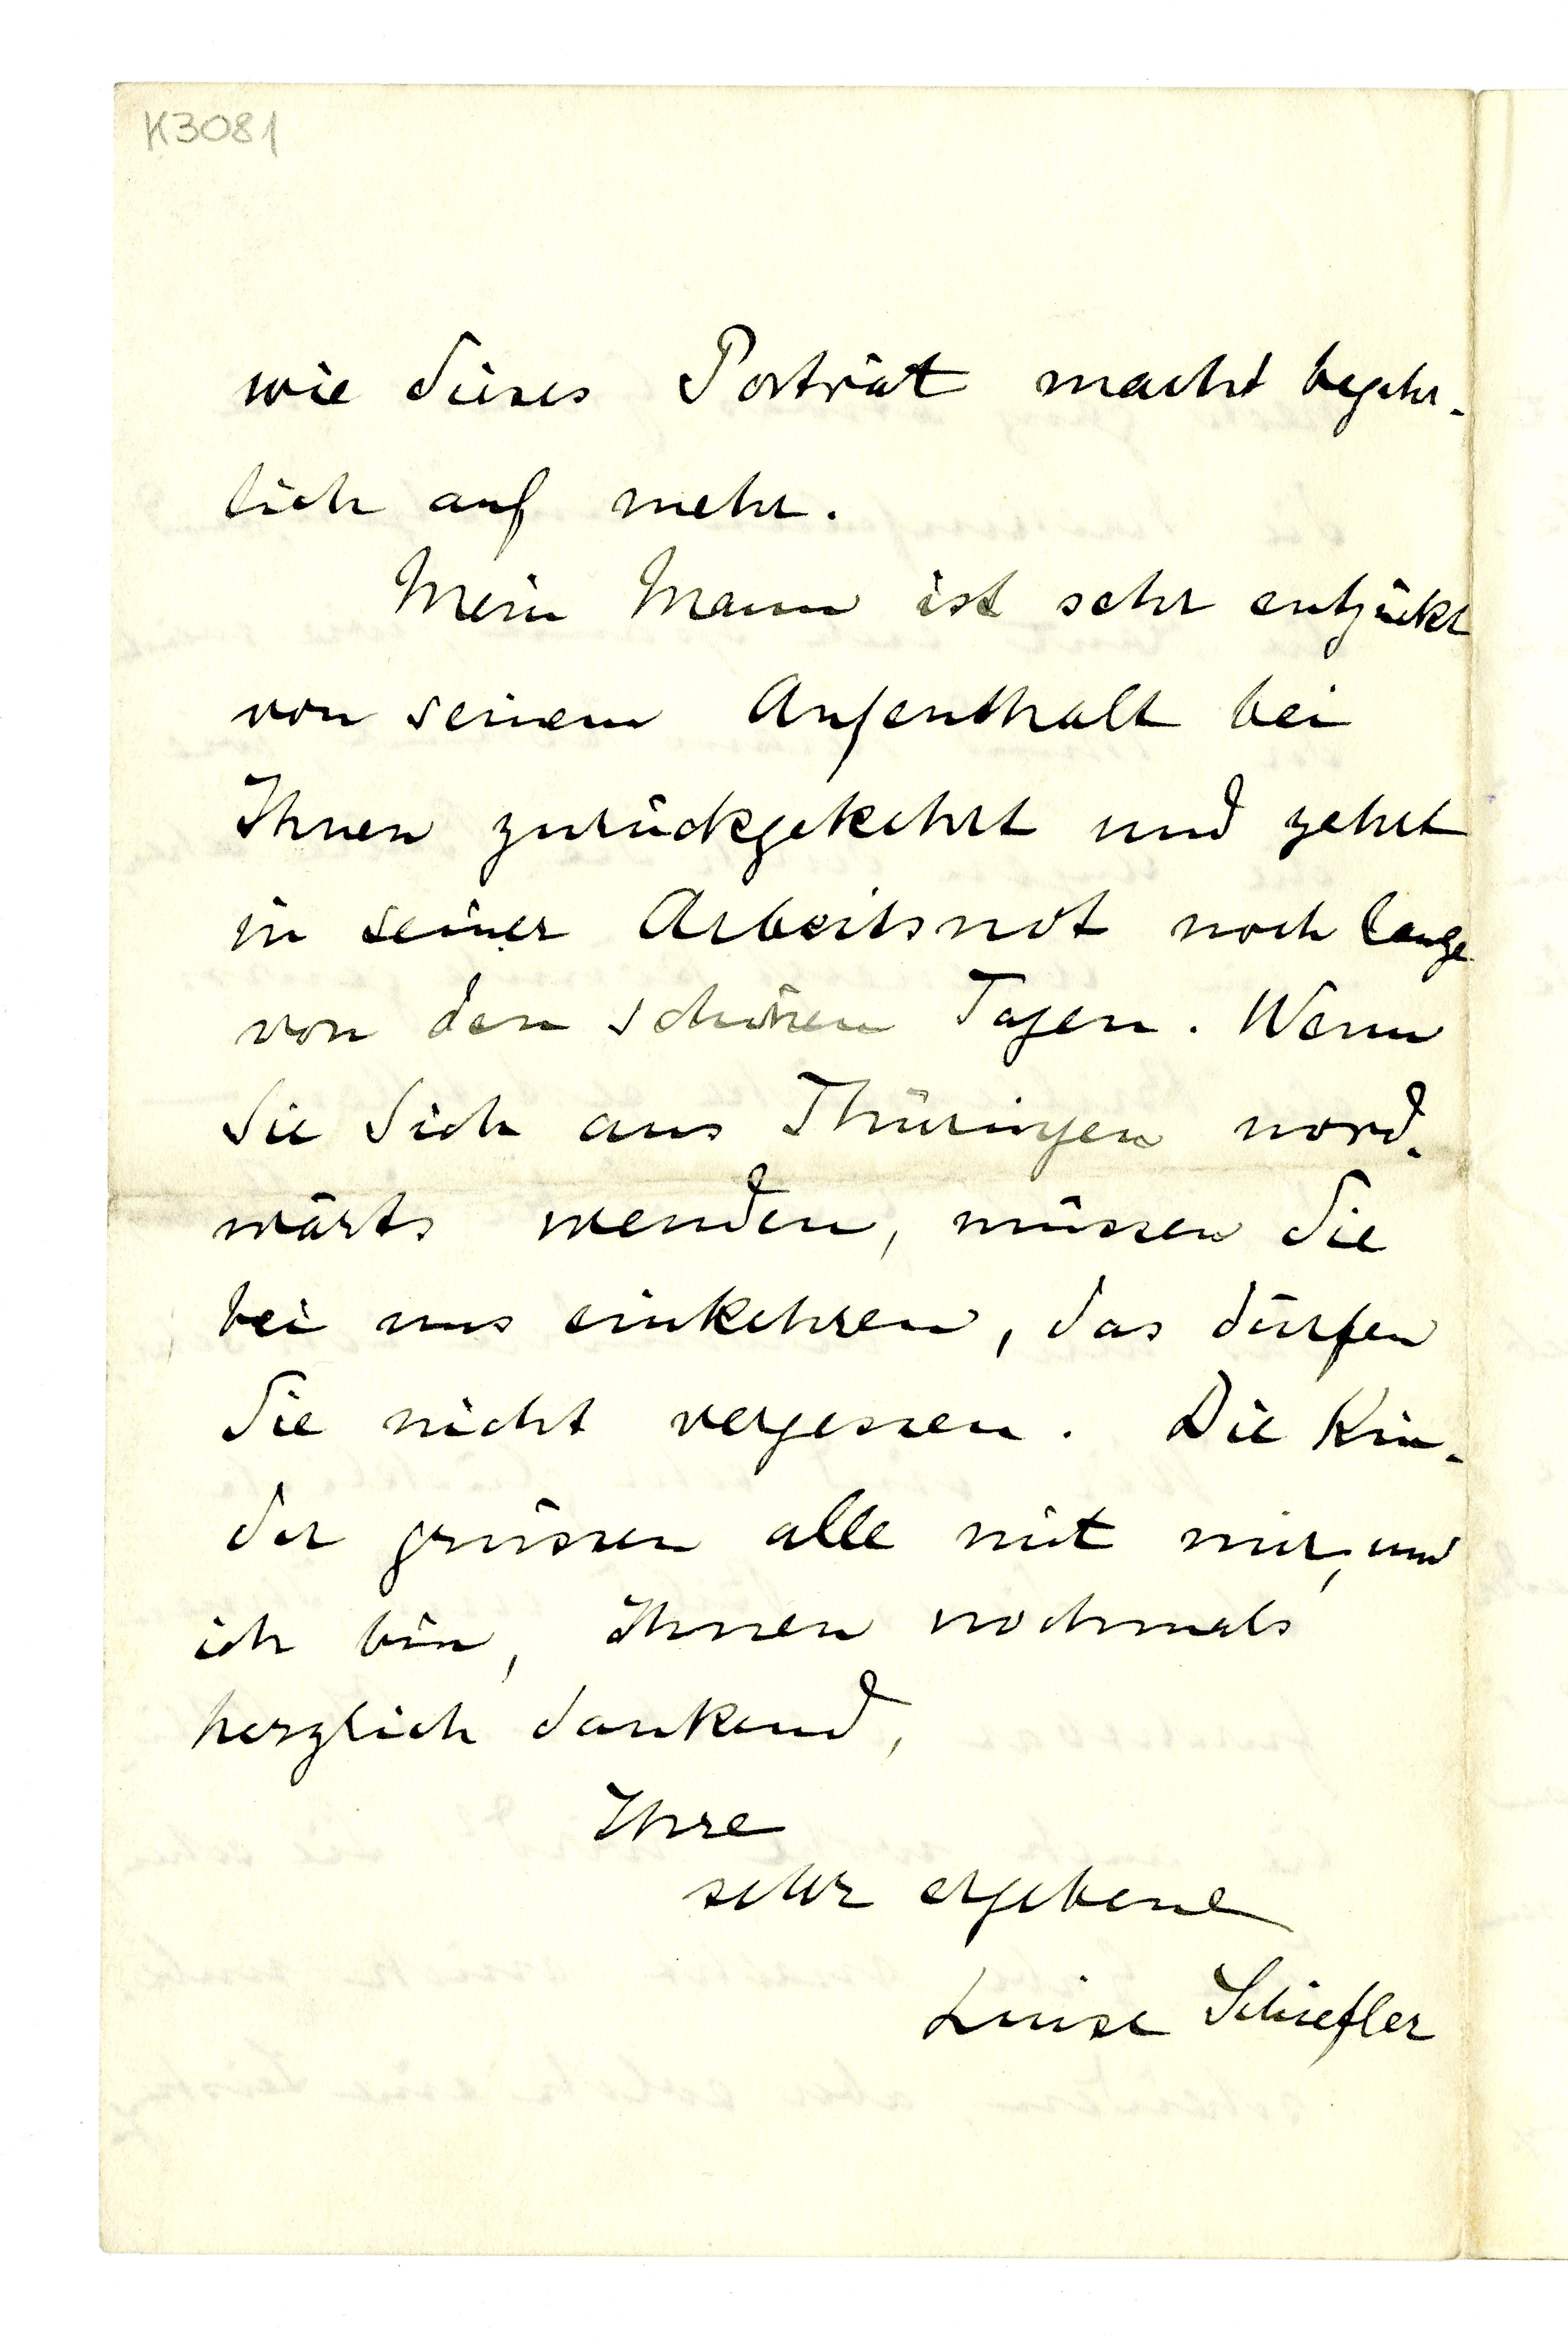 K3081
wie dieses Porträt macht begehr-
lich auf mehr.
Mein Mann ist sehr entzückt
von seinem Aufenthalt bei
Ihnen zurückgekehrt und zehrt
in seiner Arbeitsnot noch lange
von den schönen Tagen. Wenn
Sie Sich aus Thüringen nord-
wärts wenden, müssen Sie
bei uns einkehren, das dürfen
Sie nicht vergessen. Die Kin-
der grüssen alle mit mir, und
ich bin, Ihnen nochmals
herzlich dankend,
Ihre
sehr ergebene
Luise Schiefler